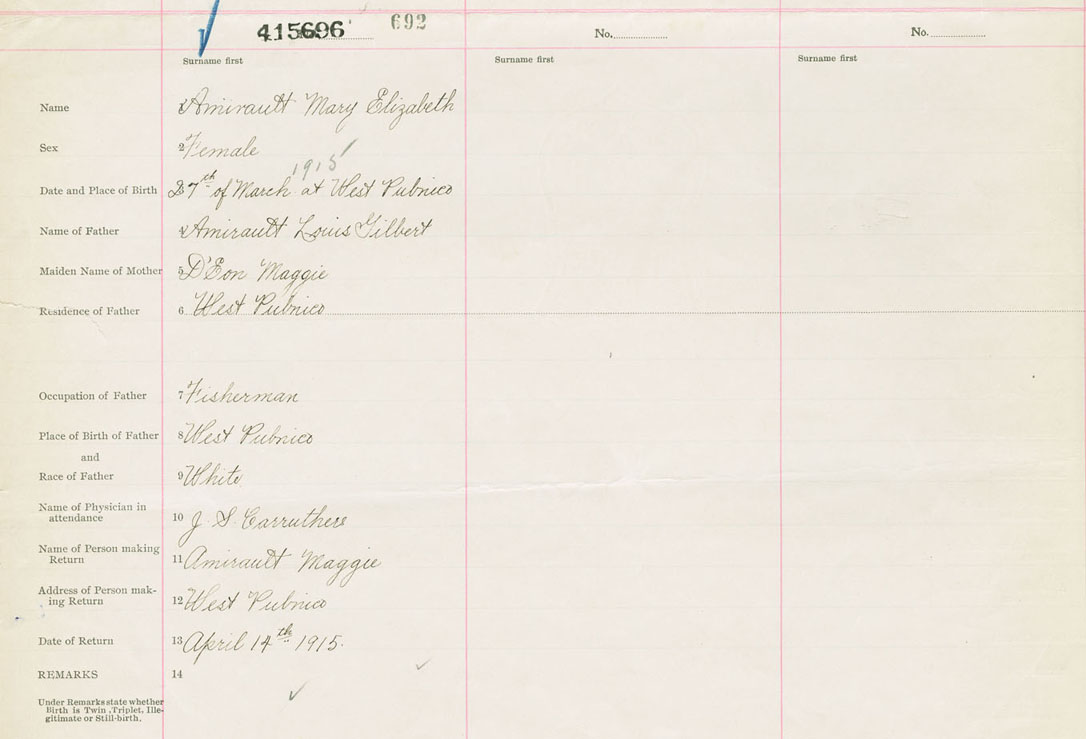 415696 692 No. No.
Surname first Surname first Surname first
Name 1 Amirault Mary Elizabeth
Sex 2 Female
1915
Date and Place of Birth 3 7th of March at West Pubnico
Name of Father 4 Amirault Louis Gilbert
Maiden Name of Mother 5 D'Eon Maggie
Residence of Father 6 West Pubnico
Occupation of Father 7 Fisherman
Place of Birth of Father 8 West Pubnico
and
Race of Father 9 White
Name of Physician in
attendance 10 J. S. Carruthers
Name of Person making
Return 11 Amirault Maggie
Address of Person mak-
ing Return 12 West Pubnico
Date of Return 13 April 14th 1915.
REMARKS 14
Under Remarks state whether
Birth is Twin, Triplet, Ille-
gitimate or Still-birth.